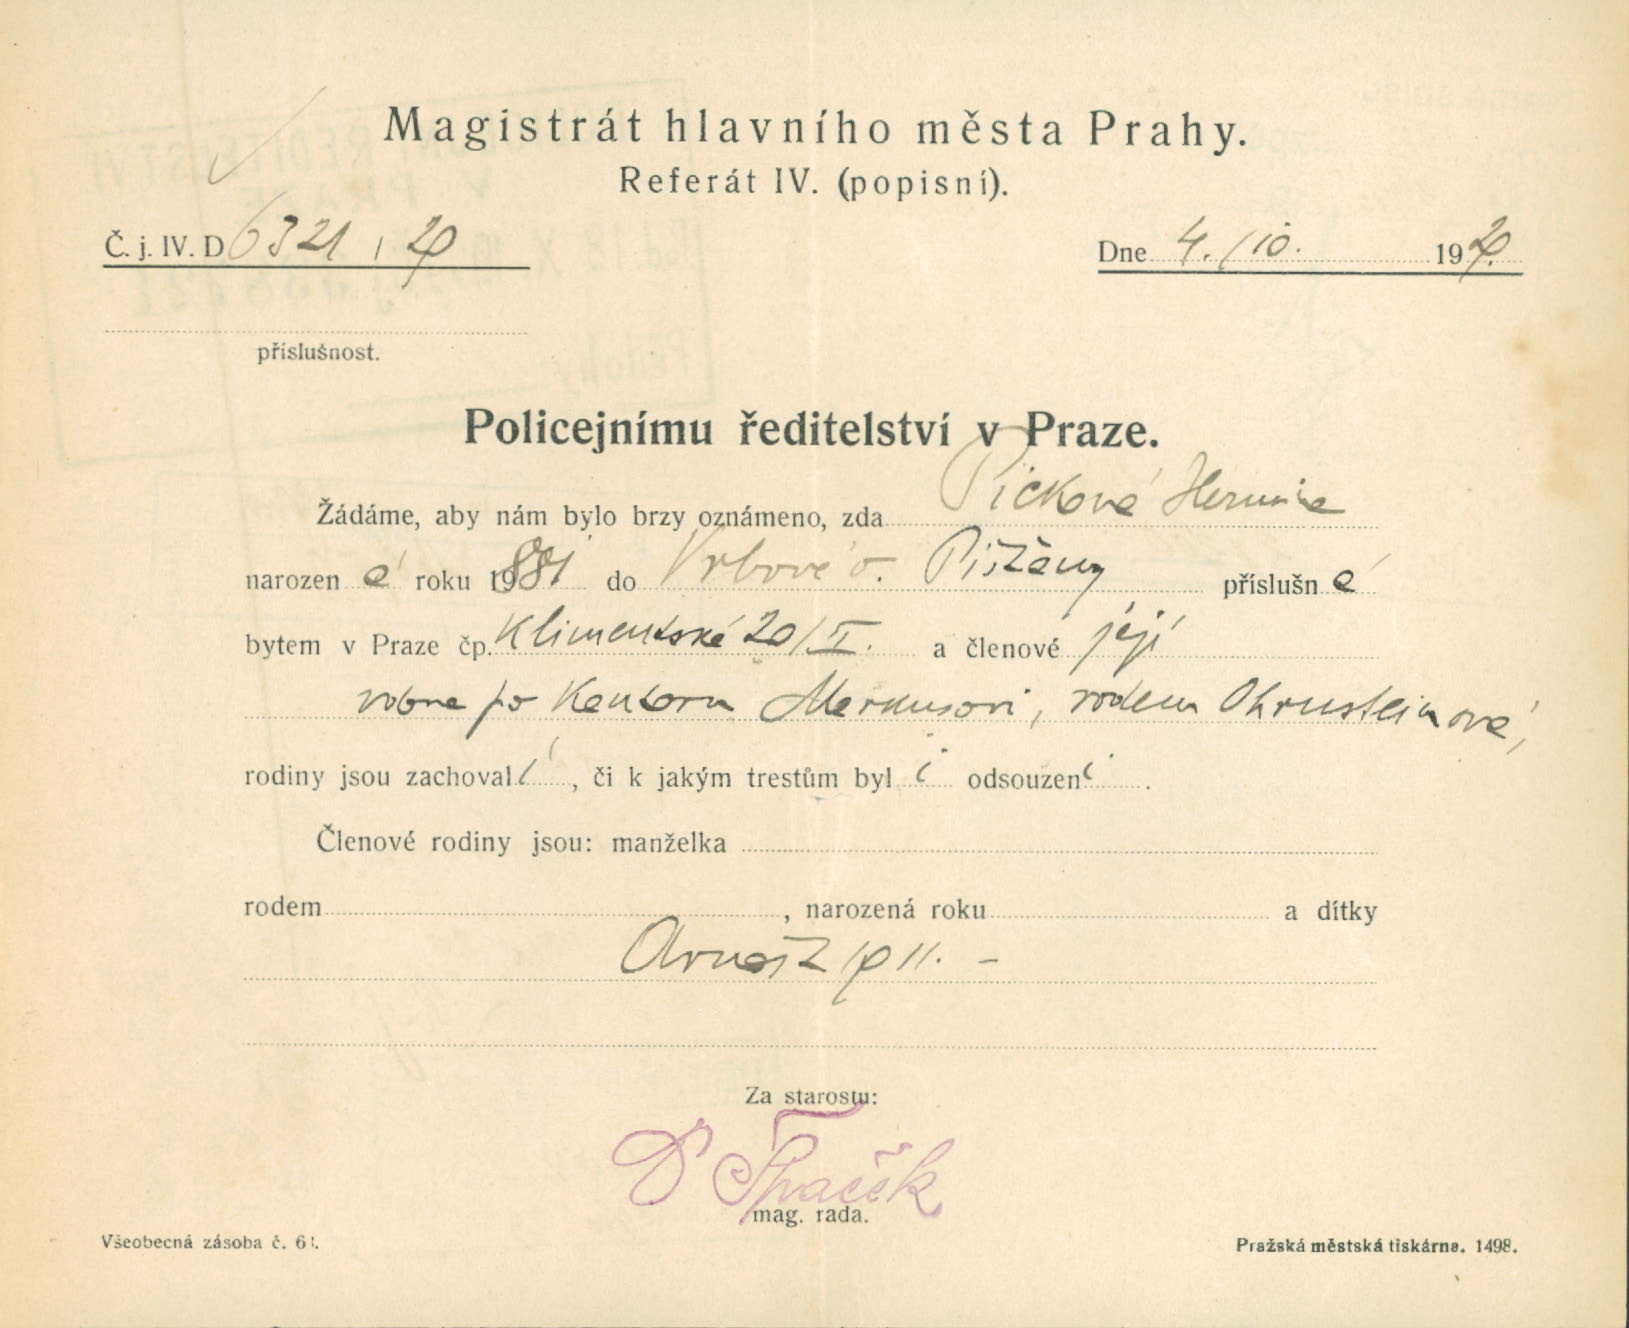 Magistrát hlavního města Prahy.
Referát IV. (popisní).
Č. j. IV. D 6321 / 20
Dne 4./10. 1920.
příslušnost.
Policejnímu ředitelství v Praze.
Žádáme, aby nám bylo brzy oznámeno, zda Picková Hermine
narozen á roku 1881 do Vrbové o. Píšťany příslušn á
bytem v Praze čp. Klimentská 20/II. a členové její
vdova po Markusovi, rodem Ohrnsteinová,
rodiny jsou zachoval í, či k jakým trestům byl i odsouzen i.
Členové rodiny jsou: manželka
rodem , narozená roku a dítky
Arnošt 1911. –
Za starostu:
Dr Špaček
mag. rada.
Všeobecná zásoba č. 61.
Pražská městská tiskárna. 1498.